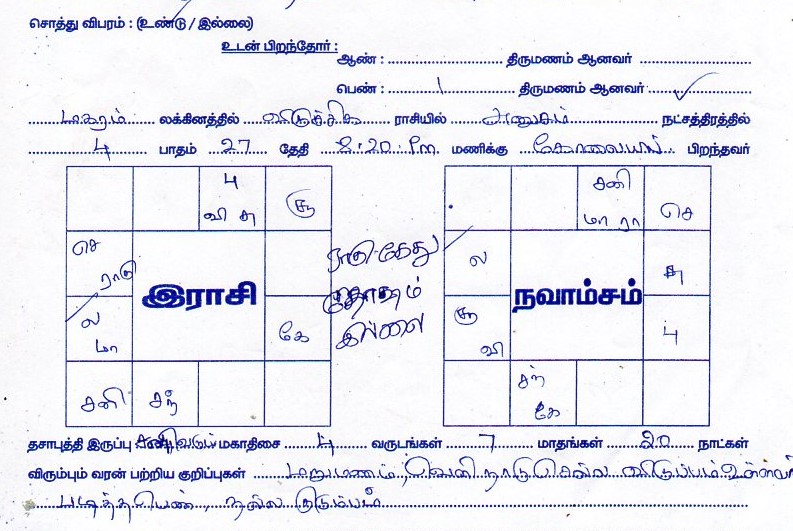 சொத்து விபரம் : (உண்டு / இல்லை)
உடன் பிறந்தோர் :
ஆண் : ........ திருமணம் ஆனவர் ........
பெண் : 1 திருமணம் ஆனவர் ✓
மகரம் லக்கினத்தில் விருச்சிக ராசியில் அனுசம் நட்சத்திரத்தில்
4 பாதம் 27 தேதி 8.20 P.m. மணிக்கு கோவையில் பிறந்தவர்
பு
வி சு
சூ
செ
ராகு
இராசி
ல
மா
கே
சனி
சந்
ராகு கேது
தோசம்
இல்லை
சனி
மா ரா
செ
ல
நவாம்சம்
சு
சூ
வி
பு
சந்
கே
தசாபுத்தி இருப்பு மகாதிசை 4 வருடங்கள் 7 மாதங்கள் 20 நாட்கள்
விரும்பும் வரன் பற்றிய குறிப்புகள் மறுமணம், வெளிநாடு செல்ல விருப்பம் உள்ளவர்
படித்த பெண், நல்ல குடும்பம்